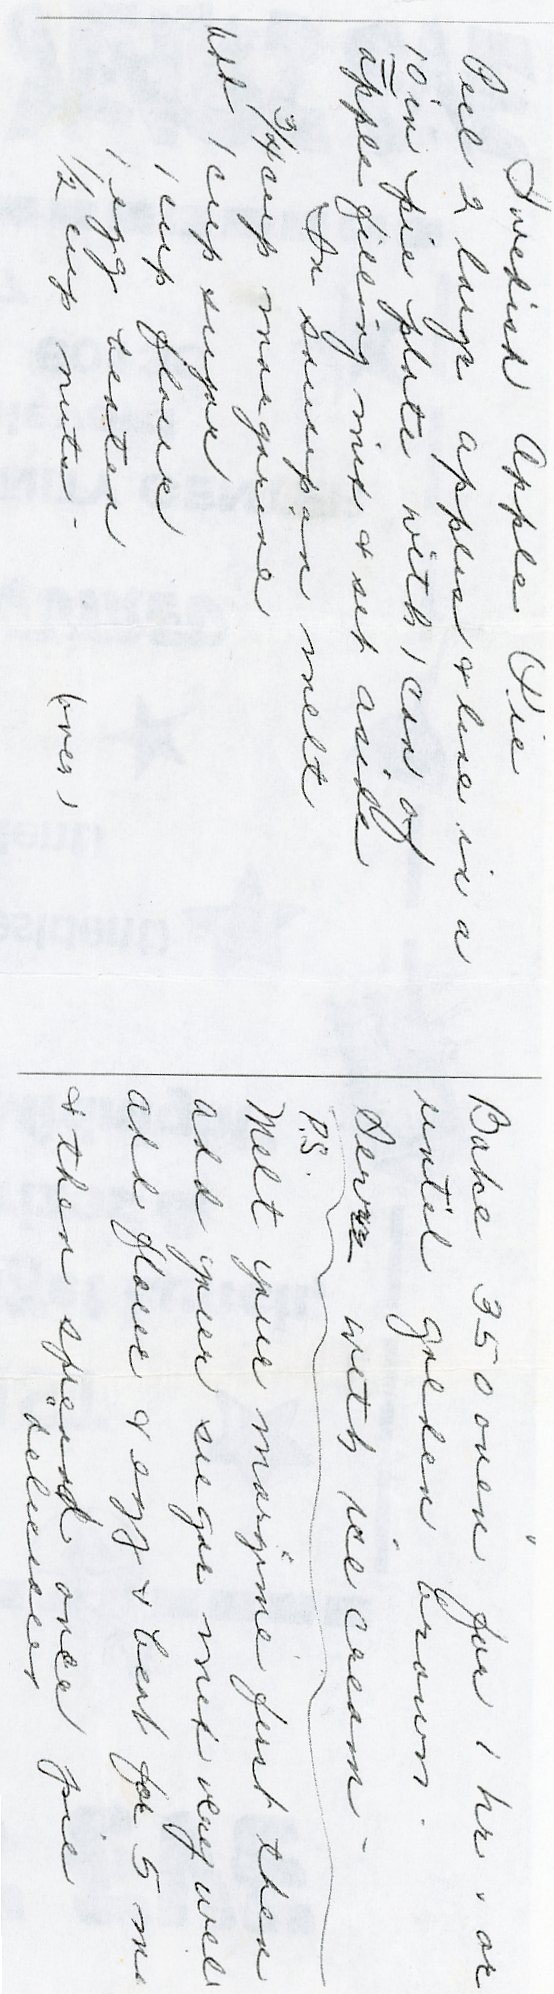 Swedish Apple Pie
Peel 2 large apples & line in a
10 in pie plate with 1 can of
apple filling mix & set aside
In saucepan melt
3/4 cup margarine
add 1 cup sugar
1 cup flour
1 egg beaten
1/2 cup nuts -
(over)
Bake 350 oven for 1 hr. or
until golden brown.
Serve with ice cream -
P.S.
Melt your margine first then
add your sugar mix very well
add flour & egg & beat for 5 m
& then spread over pie